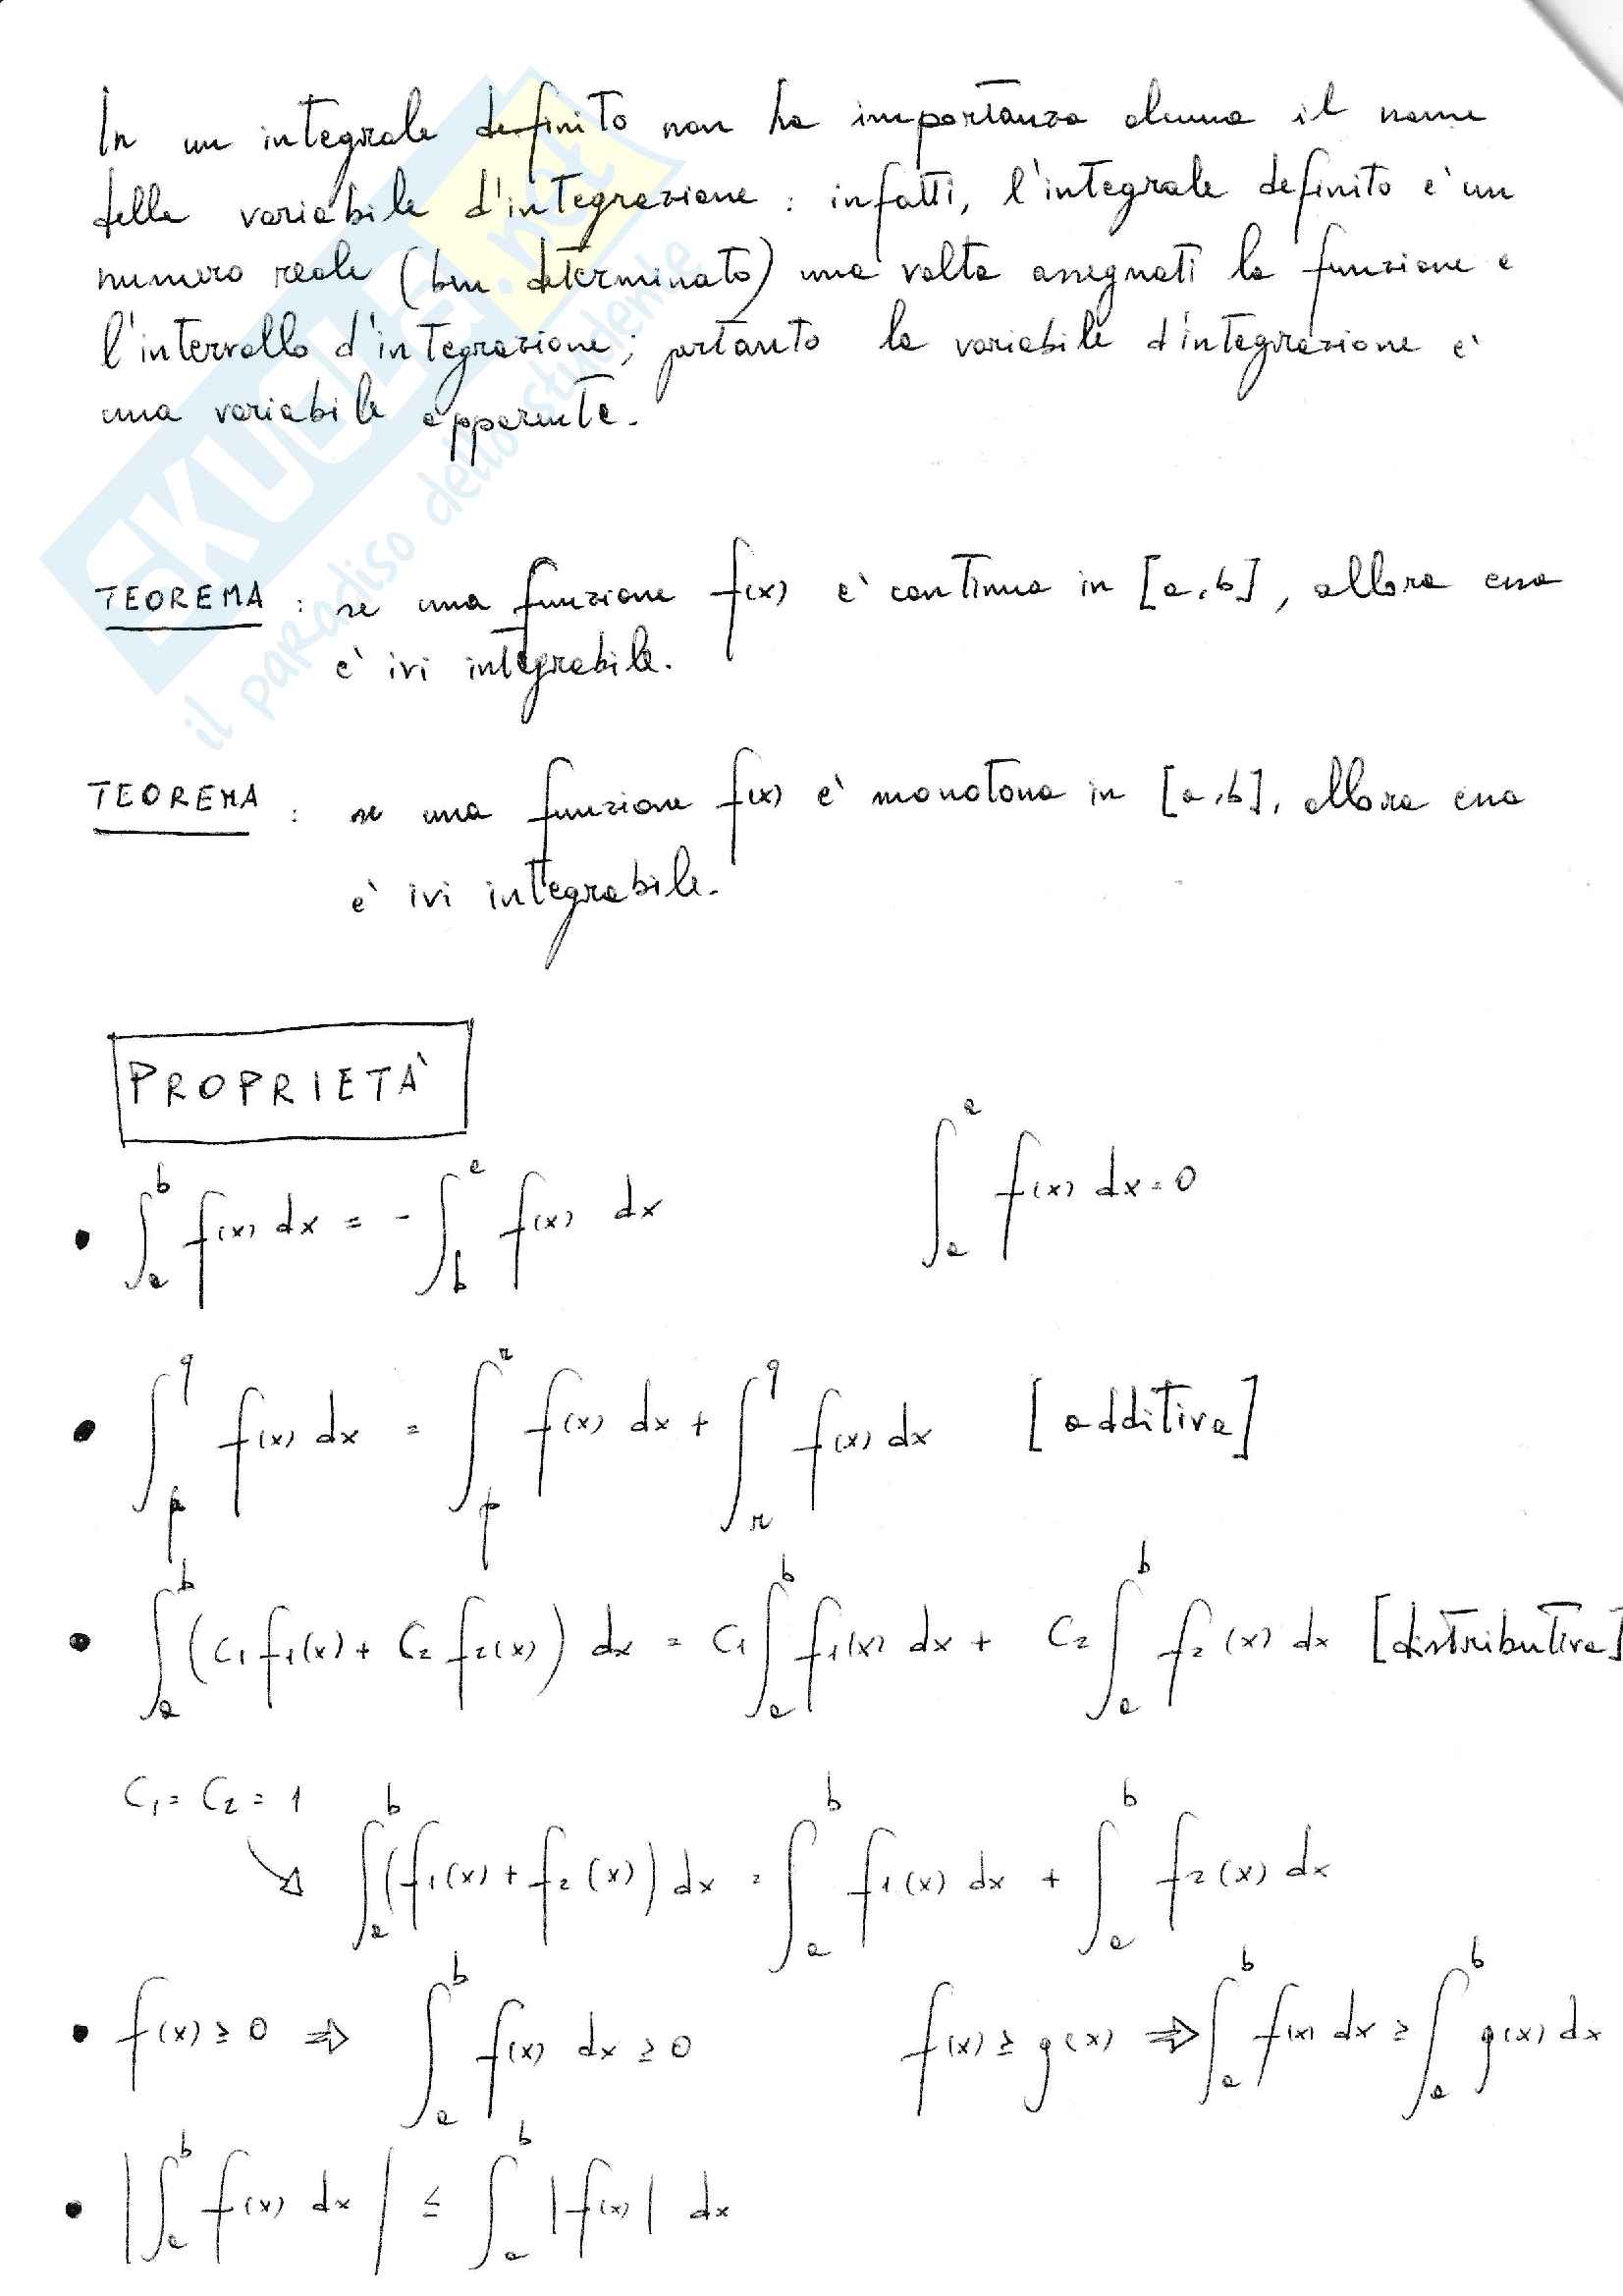 In un integrale definito non ha importanza alcuna il nome
della variabile d'integrazione : infatti, l'integrale definito e' un
numero reale (ben determinato) una volta assegnati la funzione e
l'intervallo d'integrazione; pertanto la variabile d'integrazione e'
una variabile apparente.
SKUOLA.net
il paradiso dello studente
TEOREMA : se una funzione f(x) e' continua in [a,b], allora essa
e' ivi integrabile.
TEOREMA : se una funzione f(x) e' monotona in [a,b], allora essa
e' ivi integrabile.
PROPRIETÀ
• ∫_a^b f(x) dx = - ∫_b^a f(x) dx    ∫_a^a f(x) dx = 0
• ∫_p^q f(x) dx = ∫_p^r f(x) dx + ∫_r^q f(x) dx [additiva]
• ∫_a^b (C₁ f₁(x) + C₂ f₂(x)) dx = C₁ ∫_a^b f₁(x) dx + C₂ ∫_a^b f₂(x) dx [distributiva]
C₁ = C₂ = 1
↘ ∫_a^b (f₁(x) + f₂(x)) dx = ∫_a^b f₁(x) dx + ∫_a^b f₂(x) dx
• f(x) ≥ 0 ⇒ ∫_a^b f(x) dx ≥ 0    f(x) ≥ g(x) ⇒ ∫_a^b f(x) dx ≥ ∫_a^b g(x) dx
• |∫_a^b f(x) dx| ≤ ∫_a^b |f(x)| dx